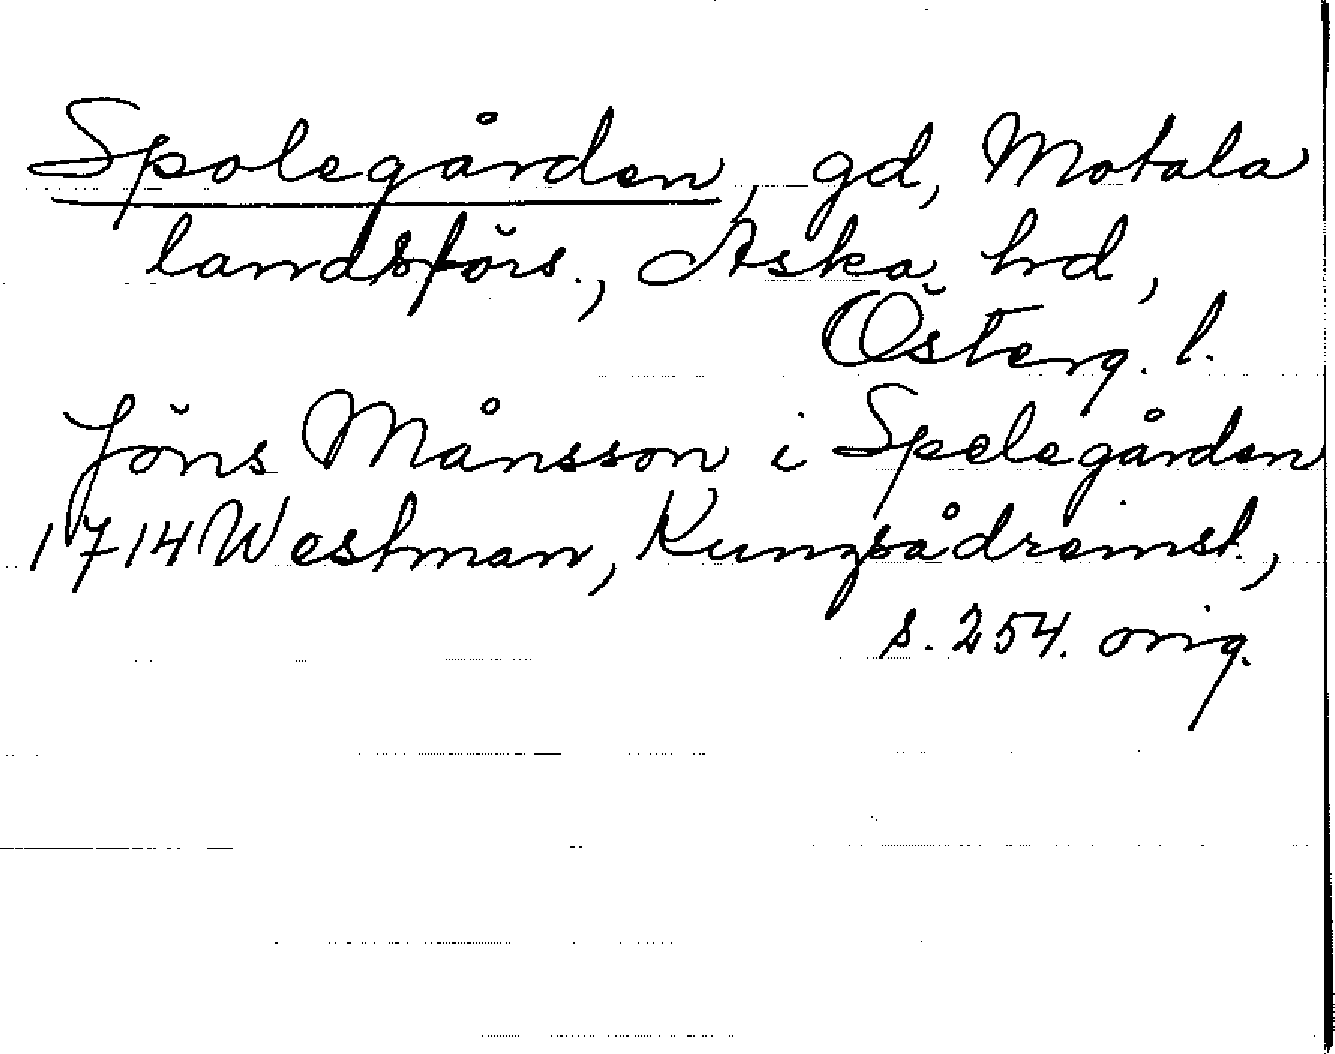 Spolegården, gd, Motala
landsförs., Aska hd,
Österg. l.
Jöns Månsson i Spelegården
1714 Westman, Kungsådreinst.,
s. 254. orig.